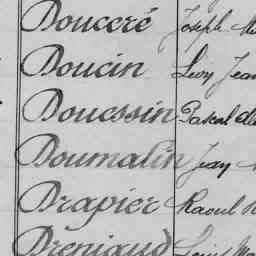 Douceré Joseph
Doucin Levy Jean
Douessin Pascal
Doumalin Jean
Drapier Raoul
Dréniaud Louis